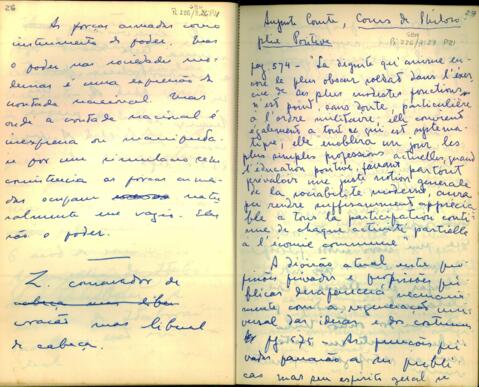 28
GBM
Pi 226/3.28 P21
As forças armadas como
instrumento de poder. Mas
o poder nas sociedades mo-
dernas é uma expressão da
vontade nacional. Mas
onde a vontade nacional é
inexpressa ou manipulada
e por um simulacro sem
consistencia as forças arma-
das ocupam natu-
ralmente um vazio. Elas
são o poder.
Z. conservador de
cabeça mas liber
coração mas liberal
de cabeça.
29
Auguste Comte, Cours de Philoso-
phie Positive
GBM
Pi 226/3.29 P21
pag. 574 - "La dignité qui anime en-
core le plus obscur soldat dans l'exer-
cice de ses plus modestes fonctions
n'est point, sans doute, particulière
à l'ordre militaire; elle convient
également à tout ce qui est systema-
tique; elle enoblira un jour les
plus simples professions actuelles, quand
l'éducation positive, faisant partout
prevaloir une juste notion generale
de la sociabilité moderne, aura
pu rendre suffisamment apprecia-
ble à tous la participation conti-
nue de chaque activité partielle
à l'economie commune"
A divisão atual entre
privados e pu-
blicas desaparecerá
mente com a regeneração uni-
versal das ideias e dos costumes
pg 575 - As funções pri-
vadas passarão a ser publi-
cas mas seu espirito geral